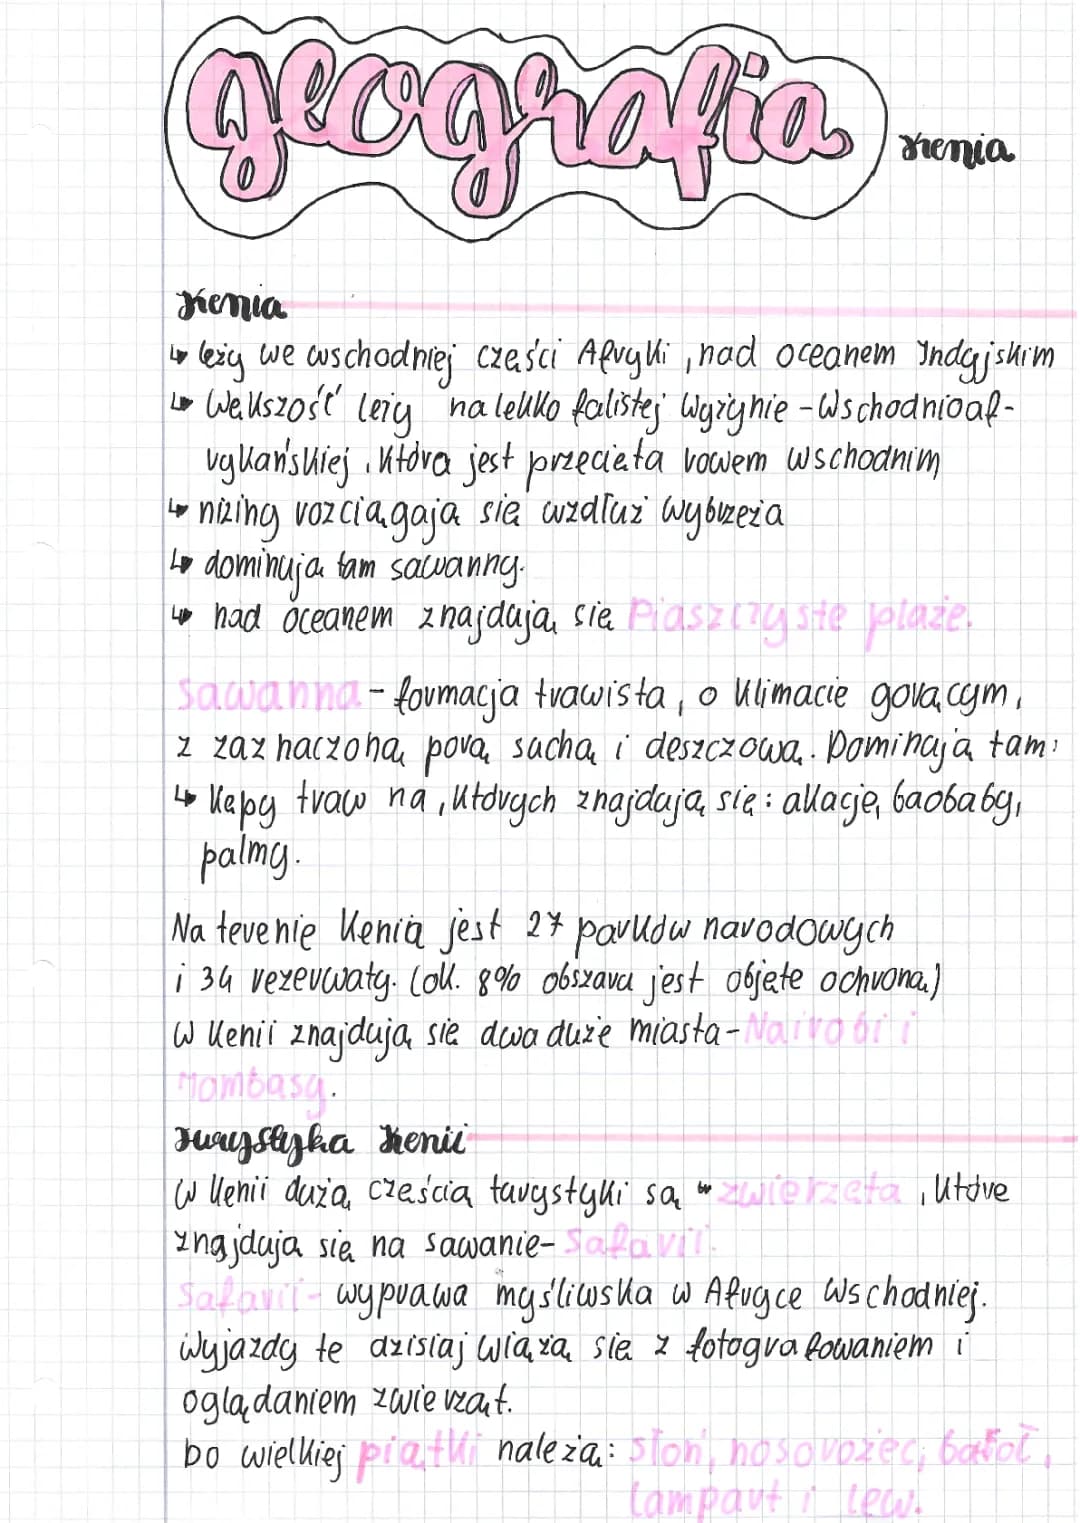 geografia
Kenia
Kenia
↳ leży we wschodniej części Afryki, nad oceanem Indyjskim
↳ Wekszość leży na lekko falistej Wyżynie - Wschodnioaf-
rykańskiej, która jest przecięta rowem wschodnim
↳ niziny rozciągają się wzdłuż wybrzeża
↳ dominują tam sawanny.
↳ nad oceanem znajdują się Piaszczyste plaże.
Sawanna - formacja trawista, o klimacie gorącym,
z zaznaczoną porą suchą i deszczową. Dominują tam:
↳ Kępy traw na, których znajdują się: akacje, baobaby,
palmy.
Na terenie Kenia jest 27 parków narodowych
i 34 rezerwaty. (ok. 8% obszaru jest objęte ochroną)
W Kenii znajdują się dwa duże miasta - Nairobi i
Mombasy.
Turystyka Kenii
W Kenii dużą częścią turystyki są zwierzęta, które
znajdują się na sawanie - Safarii.
Safarii - wyprawa myśliwska w Afryce Wschodniej.
Wyjazdy te dzisiaj wiążą się z fotografowaniem i
oglądaniem zwierząt.
Do wielkiej piątki należą: słoń, nosorożec, bafoł,
lampart i lew.